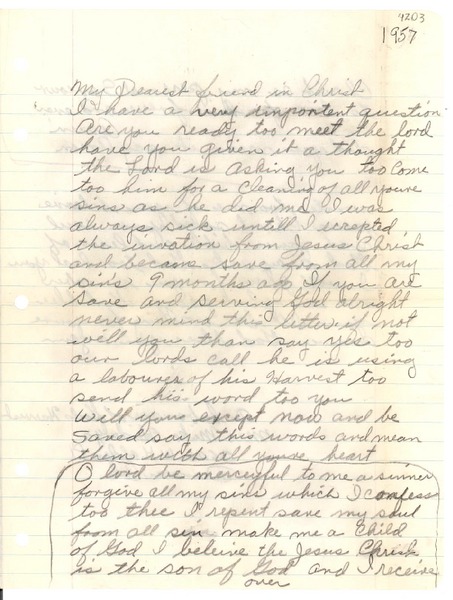 4203
1957
My Dearest Friend in Christ
I have a very importent question
Are you ready too meet the lord
have you given it a thought
the Lord is asking you too come
too him for a cleaning of all youre
sins as he did me I was
always sick untill I excepted,
the invation from Jesus Christ
and became save from all my
sins 9 months ago If you are
save and serving God alright
never mind this letter if not
will you than say yes too
our lords call he is using
a labourer of his Harvest too
send his word too you
Will you except now and be
Saved say this words and mean
them with all youre heart
O lord be merciful to me a sinner
forgive all my sins which I confess
too thee I repent save my soul
from all sin make me a Child
of God I beleive the Jesus Christ
is the son of God and I receive
over